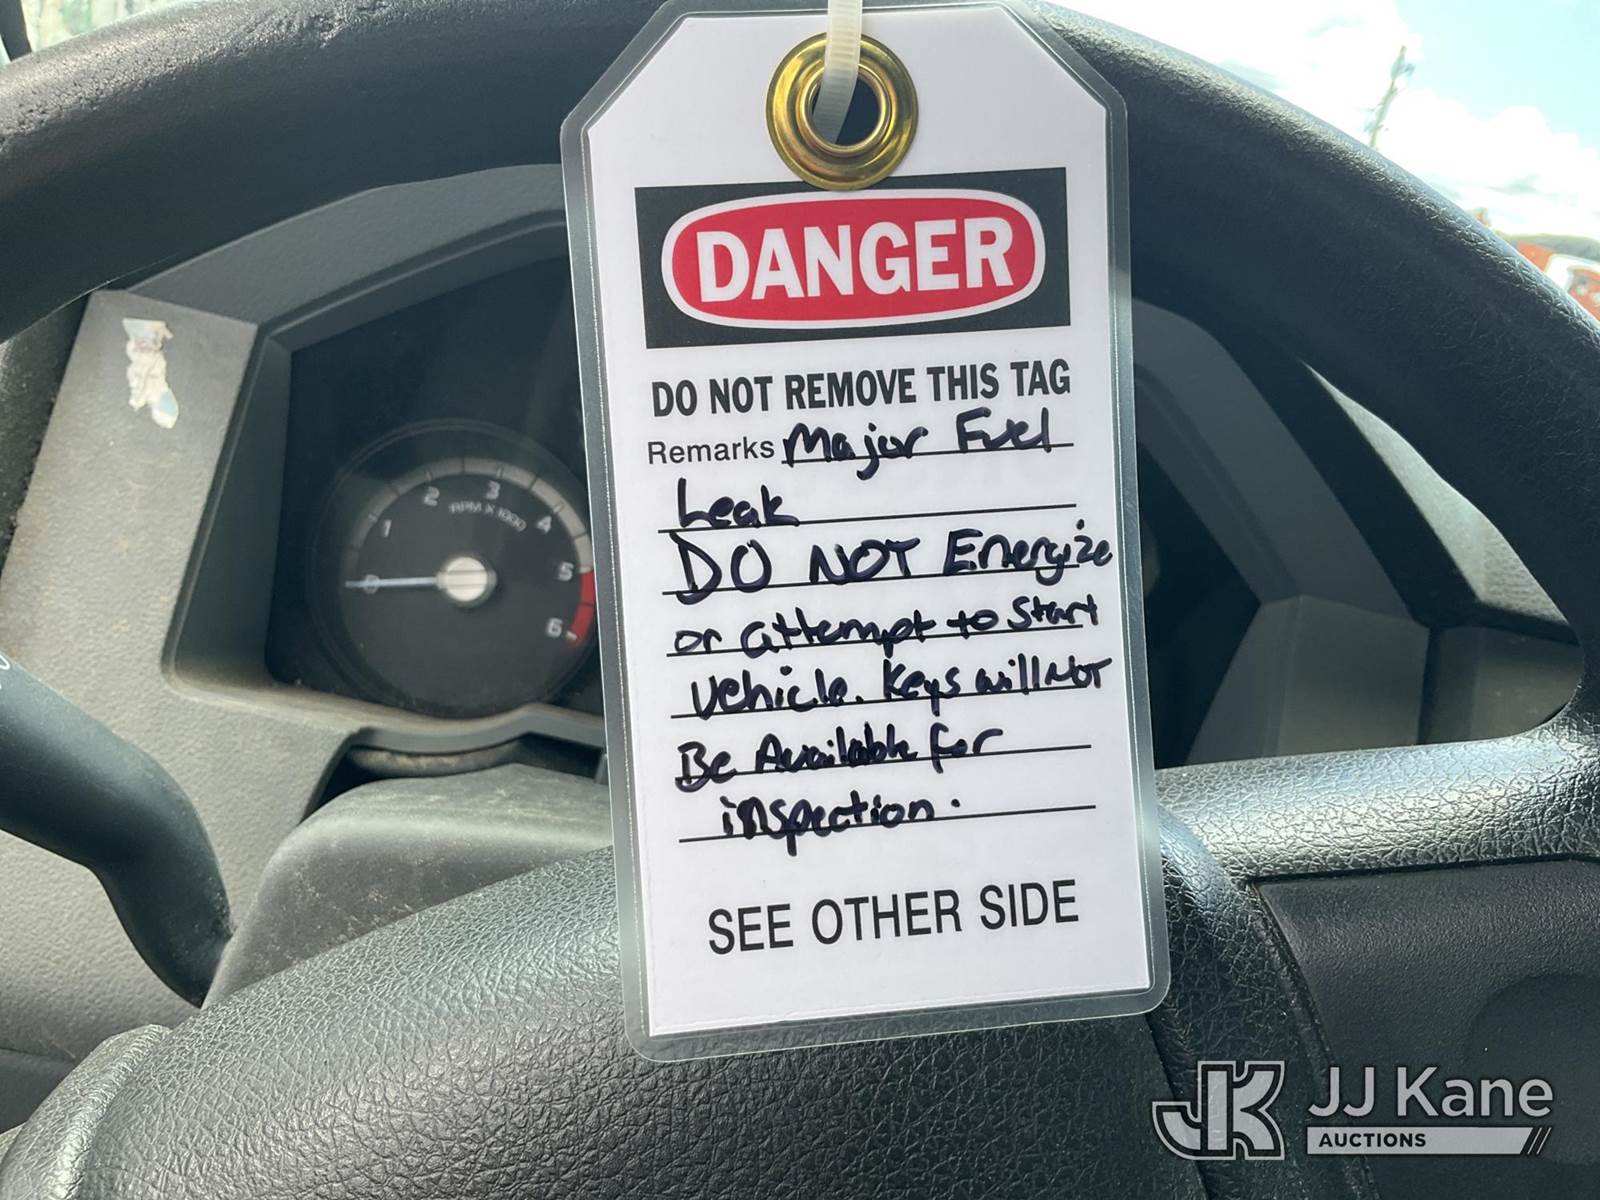 DANGER
DO NOT REMOVE THIS TAG
Remarks Major Fuel
Leak
DO NOT Energize
or attempt to Start
vehicle. Keys will NOT
Be Available for
inspection.
SEE OTHER SIDE
0 1 2 3 4 5 6
RPM X 1000
JK JJ Kane
AUCTIONS